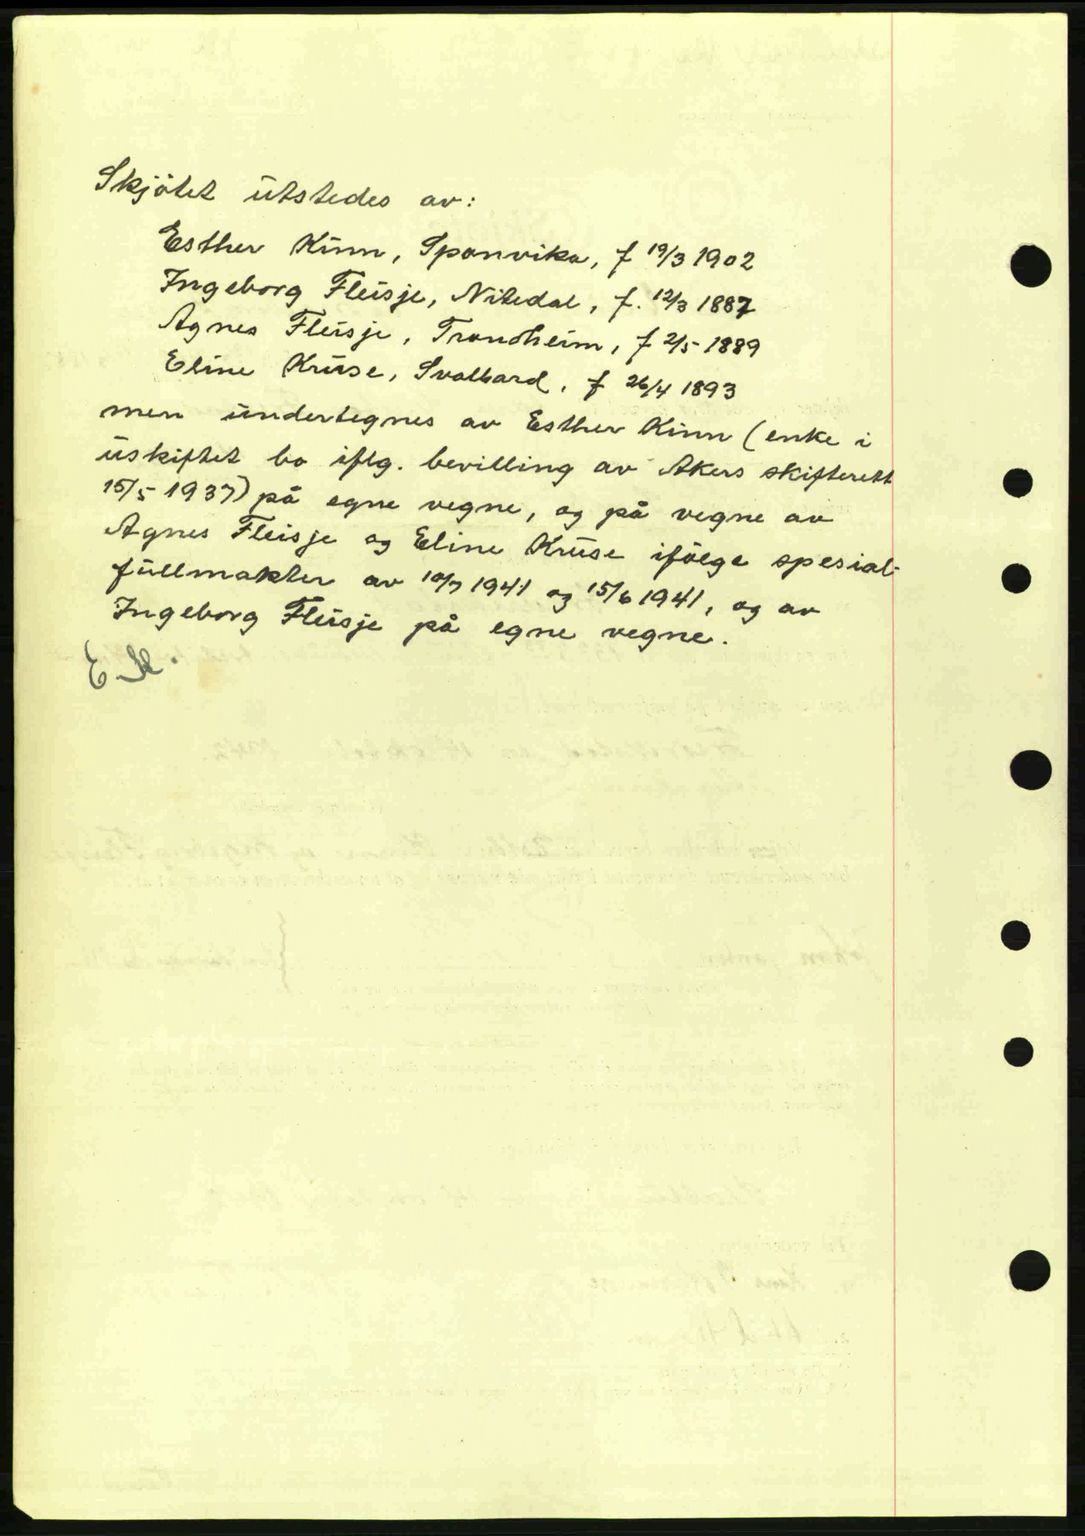 Skjötet utstedes av:
Esther Kinn, Sponvika, f 19/3 1902
Ingeborg Fleisje, Nitedal, f. 12/3 1887
Agnes Fleisje, Trondheim, f 2/5 1889
Eline Kruse, Svalbard, f 26/4 1893
men undertegnes av Esther Kinn (enke i
uskiftet bo iflg. bevilling av Akers skifterett
15/5 1937) på egne vegne, og på vegne av
Agnes Fleisje og Eline Kruse ifölge spesial-
fullmakter av 10/7 1941 og 15/6 1941, og av
Ingeborg Fleisje på egne vegne.
E K.